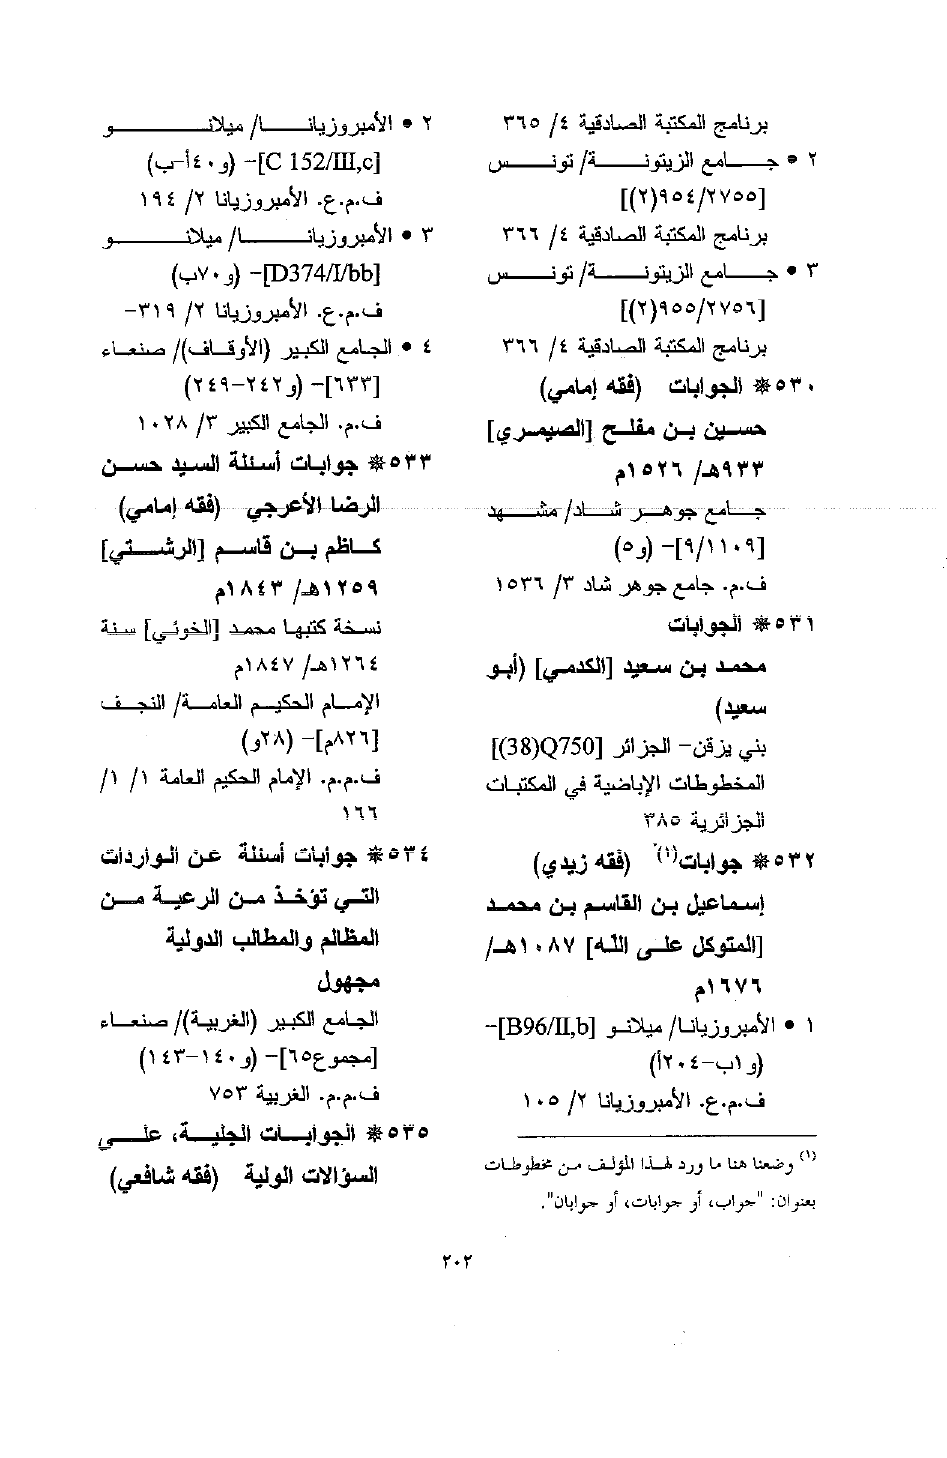 برنامج المكتبة الصادقية ٤/ ٣٦٥
٢ • جامع الزيتونة/ تونس
[٩٥٤/٢٧٥٥(٢)]
برنامج المكتبة الصادقية ٤/ ٣٦٦
٣ • جامع الزيتونة/ تونس
[٩٥٥/٢٧٥٦(٢)]
برنامج المكتبة الصادقية ٤/ ٣٦٦
٥٣٠※ الجوابات (فقه إمامي)
حسين بن مفلح [الصيمري]
٩٣٣هـ/ ١٥٢٦م
جامع جوهر شاد/ مشهد
[٩/١١٠٩]- (و٥)
ف.م. جامع جوهر شاد ٣/ ١٥٣٦
٥٣١※ الجوابات
محمد بن سعيد [الكدمي] (أبو
سعيد)
بني يزقن- الجزائر [Q750(38)]
المخطوطات الإباضية في المكتبات
الجزائرية ٣٨٥
٥٣٢※ جوابات(١) (فقه زيدي)
إسماعيل بن القاسم بن محمد
[المتوكل على الله] ١٠٨٧هـ/
١٦٧٦م
١ • الأمبروزيانا/ ميلانو [B96/II,b]-
(و١ب-٢٠٤أ)
ف.م.ع. الأمبروزيانا ٢/ ١٠٥
(١) وضعنا هنا ما ورد لهذا المؤلف من مخطوطات
بعنوان: "جواب، أو جوابات، أو جوابان".
٢ • الأمبروزيانا/ ميلانو
[C 152/III,c]- (و٤٠أ-ب)
ف.م.ع. الأمبروزيانا ٢/ ١٩٤
٣ • الأمبروزيانا/ ميلانو
[D374/I/bb]- (و٧٠ب)
ف.م.ع. الأمبروزيانا ٢/ ٣١٩-
٤ • الجامع الكبير (الأوقاف)/ صنعاء
[٦٣٣]- (و٢٤٢-٢٤٩)
ف.م. الجامع الكبير ٣/ ١٠٢٨
٥٣٣※ جوابات أسئلة السيد حسن
الرضا الأعرجي (فقه إمامي)
كاظم بن قاسم [الرشتي]
١٢٥٩هـ/ ١٨٤٣م
نسخة كتبها محمد [الخوئي] سنة
١٢٦٤هـ/ ١٨٤٧م
الإمام الحكيم العامة/ النجف
[٨٢٦م]- (٢٨و)
ف.م.م. الإمام الحكيم العامة ١/ ١/
١٦٦
٥٣٤※ جوابات أسئلة عن الواردات
التي تؤخذ من الرعية من
المظالم والمطالب الدولية
مجهول
الجامع الكبير (الغربية)/ صنعاء
[مجموع٦٥]- (و١٤٠-١٤٣)
ف.م.م. الغربية ٧٥٣
٥٣٥※ الجوابات الجلية، على
السؤالات الولية (فقه شافعي)
٢٠٢